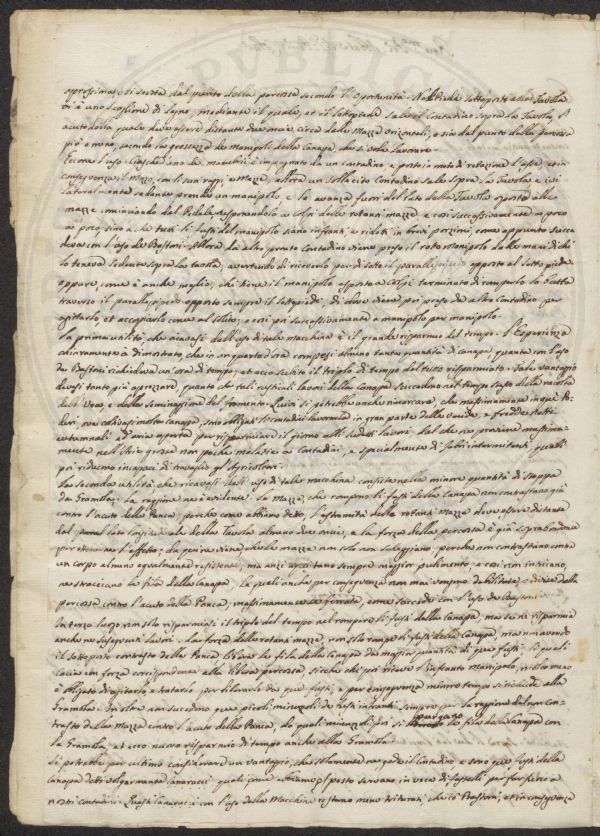 aprossimarsi e scosta dal punto della percossa secondo l'oportunità. Nel Piede sottoposto alla Tavola
vi è uno scaglione di legno, mediante il quale, et il sottopiede sale il Contadino sopra la Tavola, l'
acuto della quale deve essere distante due once circa dalle Mazze orizontali, o sia dal punto della percossa
più o meno, secondo la grossezza de' Manipoli della Canapa, che si vole lavorare.
Eccone l'uso. Ciascheduno de' manubri è impugnato da un contadino, e posto in moto di rotazione l'asse, et in
conseguenza il Mozzo, con li suoi raggi e Mazze, allora un sollecito Contadino sale sopra la Tavola, e ivi
lateralmente sedente prende un manipolo, e lo avanza fuori del lato della Tavola opposto alle
mazze cominciando dal Pedale, esponendolo a colpi delle rotanti mazze, e così successivamente a poco
a poco, sino a che tutti li fusti del manipolo siano infranti e ridotti in brevi porzioni, come appunto succe
deva con l'uso de Bastoni. Allora da altro pronto Contadino viene preso il rotto Manipolo dalle mani di chi
lo teneva sedente sopra la tavola, avertendo di riceverlo per di sotto il parallepipedo opposto al sotto piede
oppure, come è anche meglio, chi tiene il manipolo esposto a Colpi terminato di romperlo lo getta
traverso il parallepipedo opposto sempre il sottopiede, di dove viene poi preso da altro Contadino per
agitarlo, et accopiarlo come al solito, e così poi successivamente a manipolo per manipolo.
La prima utilità, che ricavasi dall'uso di tale macchina è il grande risparmio del tempo. L'Esperienza
chiaramente à dimostrato, che in un quarto d'ora rompesi almeno tanta quantità di canapa, quanta con l'uso
de Bastoni richiedeva un'ora di tempo, et ecco subito il triplo del tempo del tutto risparmiato. Tale vantaggio
devesi tanto più aprezzare, quanto che tali rusticali lavori della Canapa succedono nel tempo stesso della racolta
dell'Uva, e della seminagione del Formento. Quivi si potrebbe anche rimarcare, che massimamente in que' Po
deri, ove copiosissima canapa, sono obligati li contadini lavorarla in gran parte delle umide, e fredde Notti
autunnali ad aria aperta, per risparmiare il giorno alli sudetti lavori, dal che ne proviene massima-
mente nelli Stivi grosse non poche malatie a Contadini, e specialmente di febri intermitenti, quali
poi riducono incapaci di travaglio gli Agricoltori.
La seconda utilità che ricavasi dall'uso di tale macchina consiste nella minore quantità di stoppa
da Gramola. La raggione ne è evidente. Le Mazze, che rompono li fusti della Canapa non contrastano già
contro l'acuto della Panca, perchè come abbiamo detto, l'estremità delle rotanti Mazze deve essere distante
dal lato longitudinale della Tavola almeno due oncie, e la forza della percossa è già soprabondante
per ottenerne l'effetto; da qui ne viene che le mazze non solo non solleggiano, perchè non contrastano contro
un corpo almeno egualmente resistente, ma anzi acquistano sempre maggior pulimento, e così non intricano,
ne stracciano le fila della Canapa, le quali anche per conseguenza non mai vengono debilitate, e divise dalla
percossa contro l'acuto della Panca, massimamente se ferrata, come succede con l'uso de Bastoni.
In terzo luogo non solo risparmiasi il triplo del tempo nel rompere li fusti della Canapa, ma se ne risparmia
anche ne susseguenti lavori. La forza delle rotanti mazze, non solo rompe li fusti della Canapa, ma non avendo
il sottoposto contrasto della Panca libera le fila della Canapa da maggior quantità di que' fusti, li quali
lascia con forza corrispondente alla libera percossa, sicchè chi poi riceve l'infranto Manipolo, molto meno
è obligato di agitarlo, e trattarlo per liberarlo da que' fusti, e per conseguenza minor tempo si richiede alla
Gramola. In oltre non succedono que' piccoli minuzzoli de fusti infranti sempre per la ragione del non con-
trasto delle Mazze contro l'acuto della Panca, da quali minuzzoli poi si purgano le fila della Canapa con
la Gramola, et ecco nuovo risparmio di tempo anche alla Gramola.
Si potrebbe per ultimo considerare un vantaggio, che solamente riguarda il Contadino, e sono que' fusti della
Canapa detti volgarmente Canarucci, quali come vediamo spesso servono in vece di Fastelli per far foco a
nostri contadini. Questi Canarucci con l'uso della Macchina restano meno triturati, che coi Bastoni, et in conseguenza